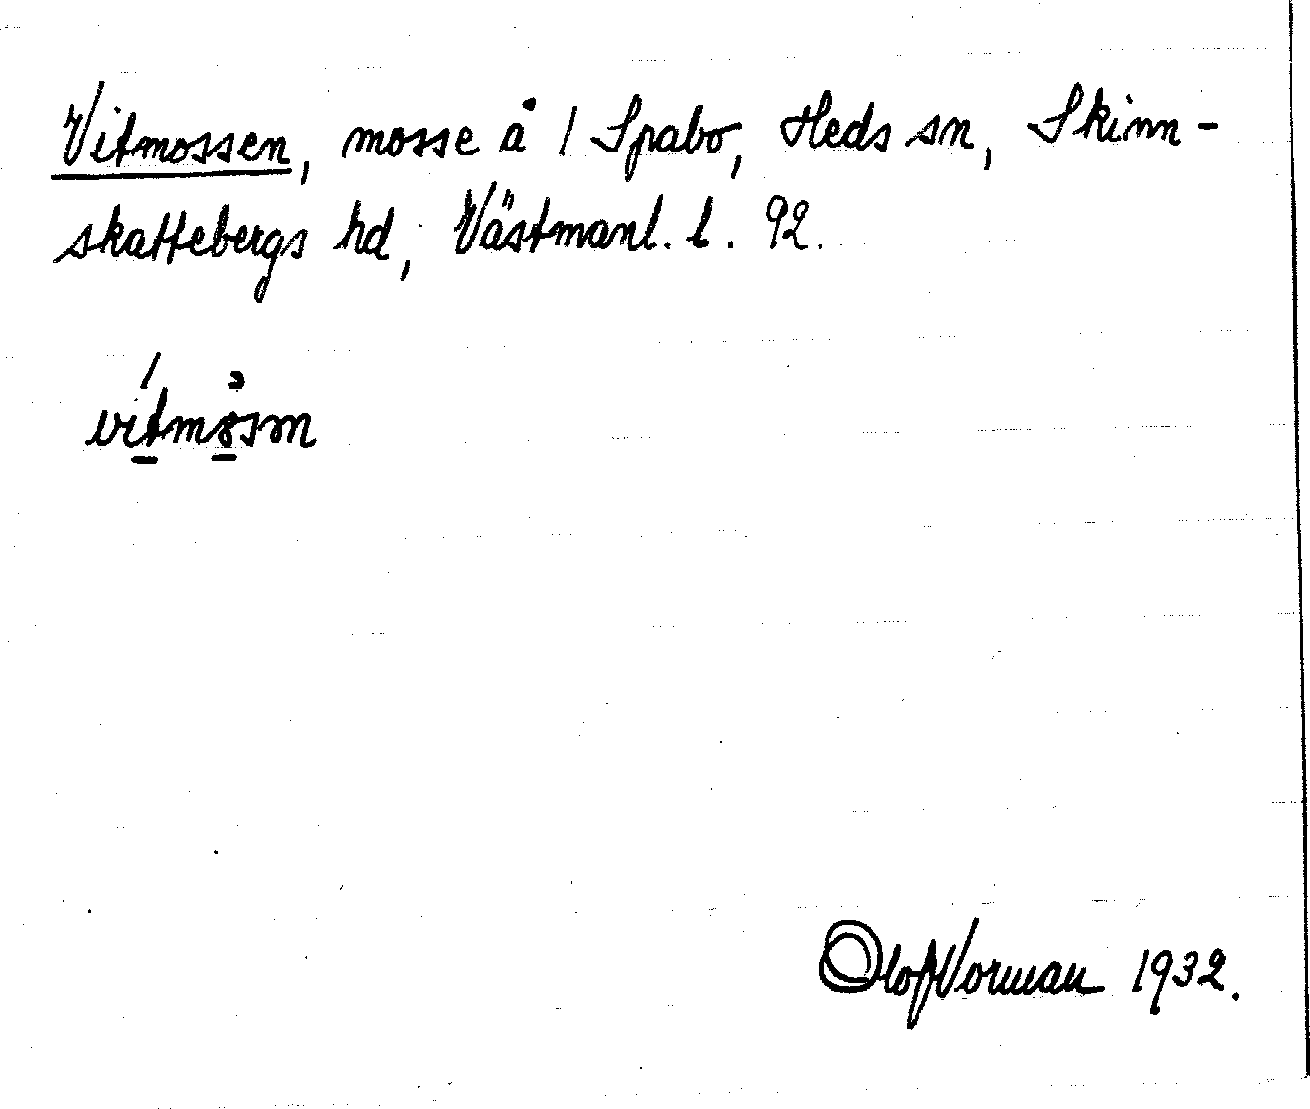 Vitmossen, mosse å 1 Spabo, Heds sn, Skinn-
skattebergs hd, Västmanl. l. 92.
vitmåsm
Olof Norman 1932.